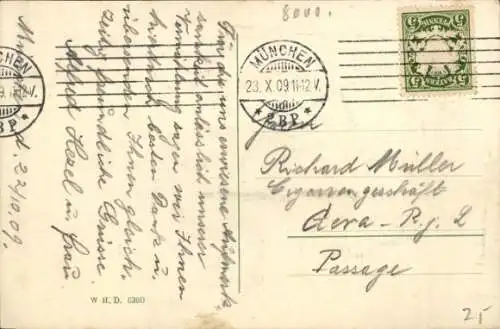 8000.
MÜNCHEN
23. X. 09. 11-12 V.
* 2 B.P. *
BAYERN
5
MÜNCHEN
* 2 B.P. *
Für die uns erwiesene Aufmerk-
samkeit anlässlich unserer
Vermählung sagen wir Ihnen
herzlich besten Dank u.
übersenden Ihnen gleich-
zeitig freundliche Grüsse.
Alfred Hezel u. Frau
d. 22/10. 09.
Herrn
Richard Müller
Cigarrengeschäft
Gera - R. j. L.
Passage
W. H. D. 6360
25